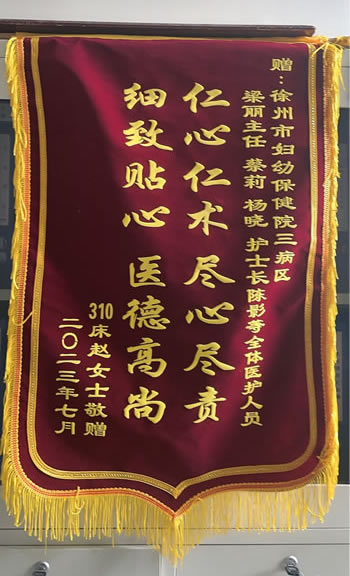 赠：徐州市妇幼保健院三病区
梁丽主任 蔡莉 杨晓 护士长陈影等全体医护人员
仁心仁术 尽心尽责
细致贴心 医德高尚
310床赵女士敬赠
二〇二三年七月